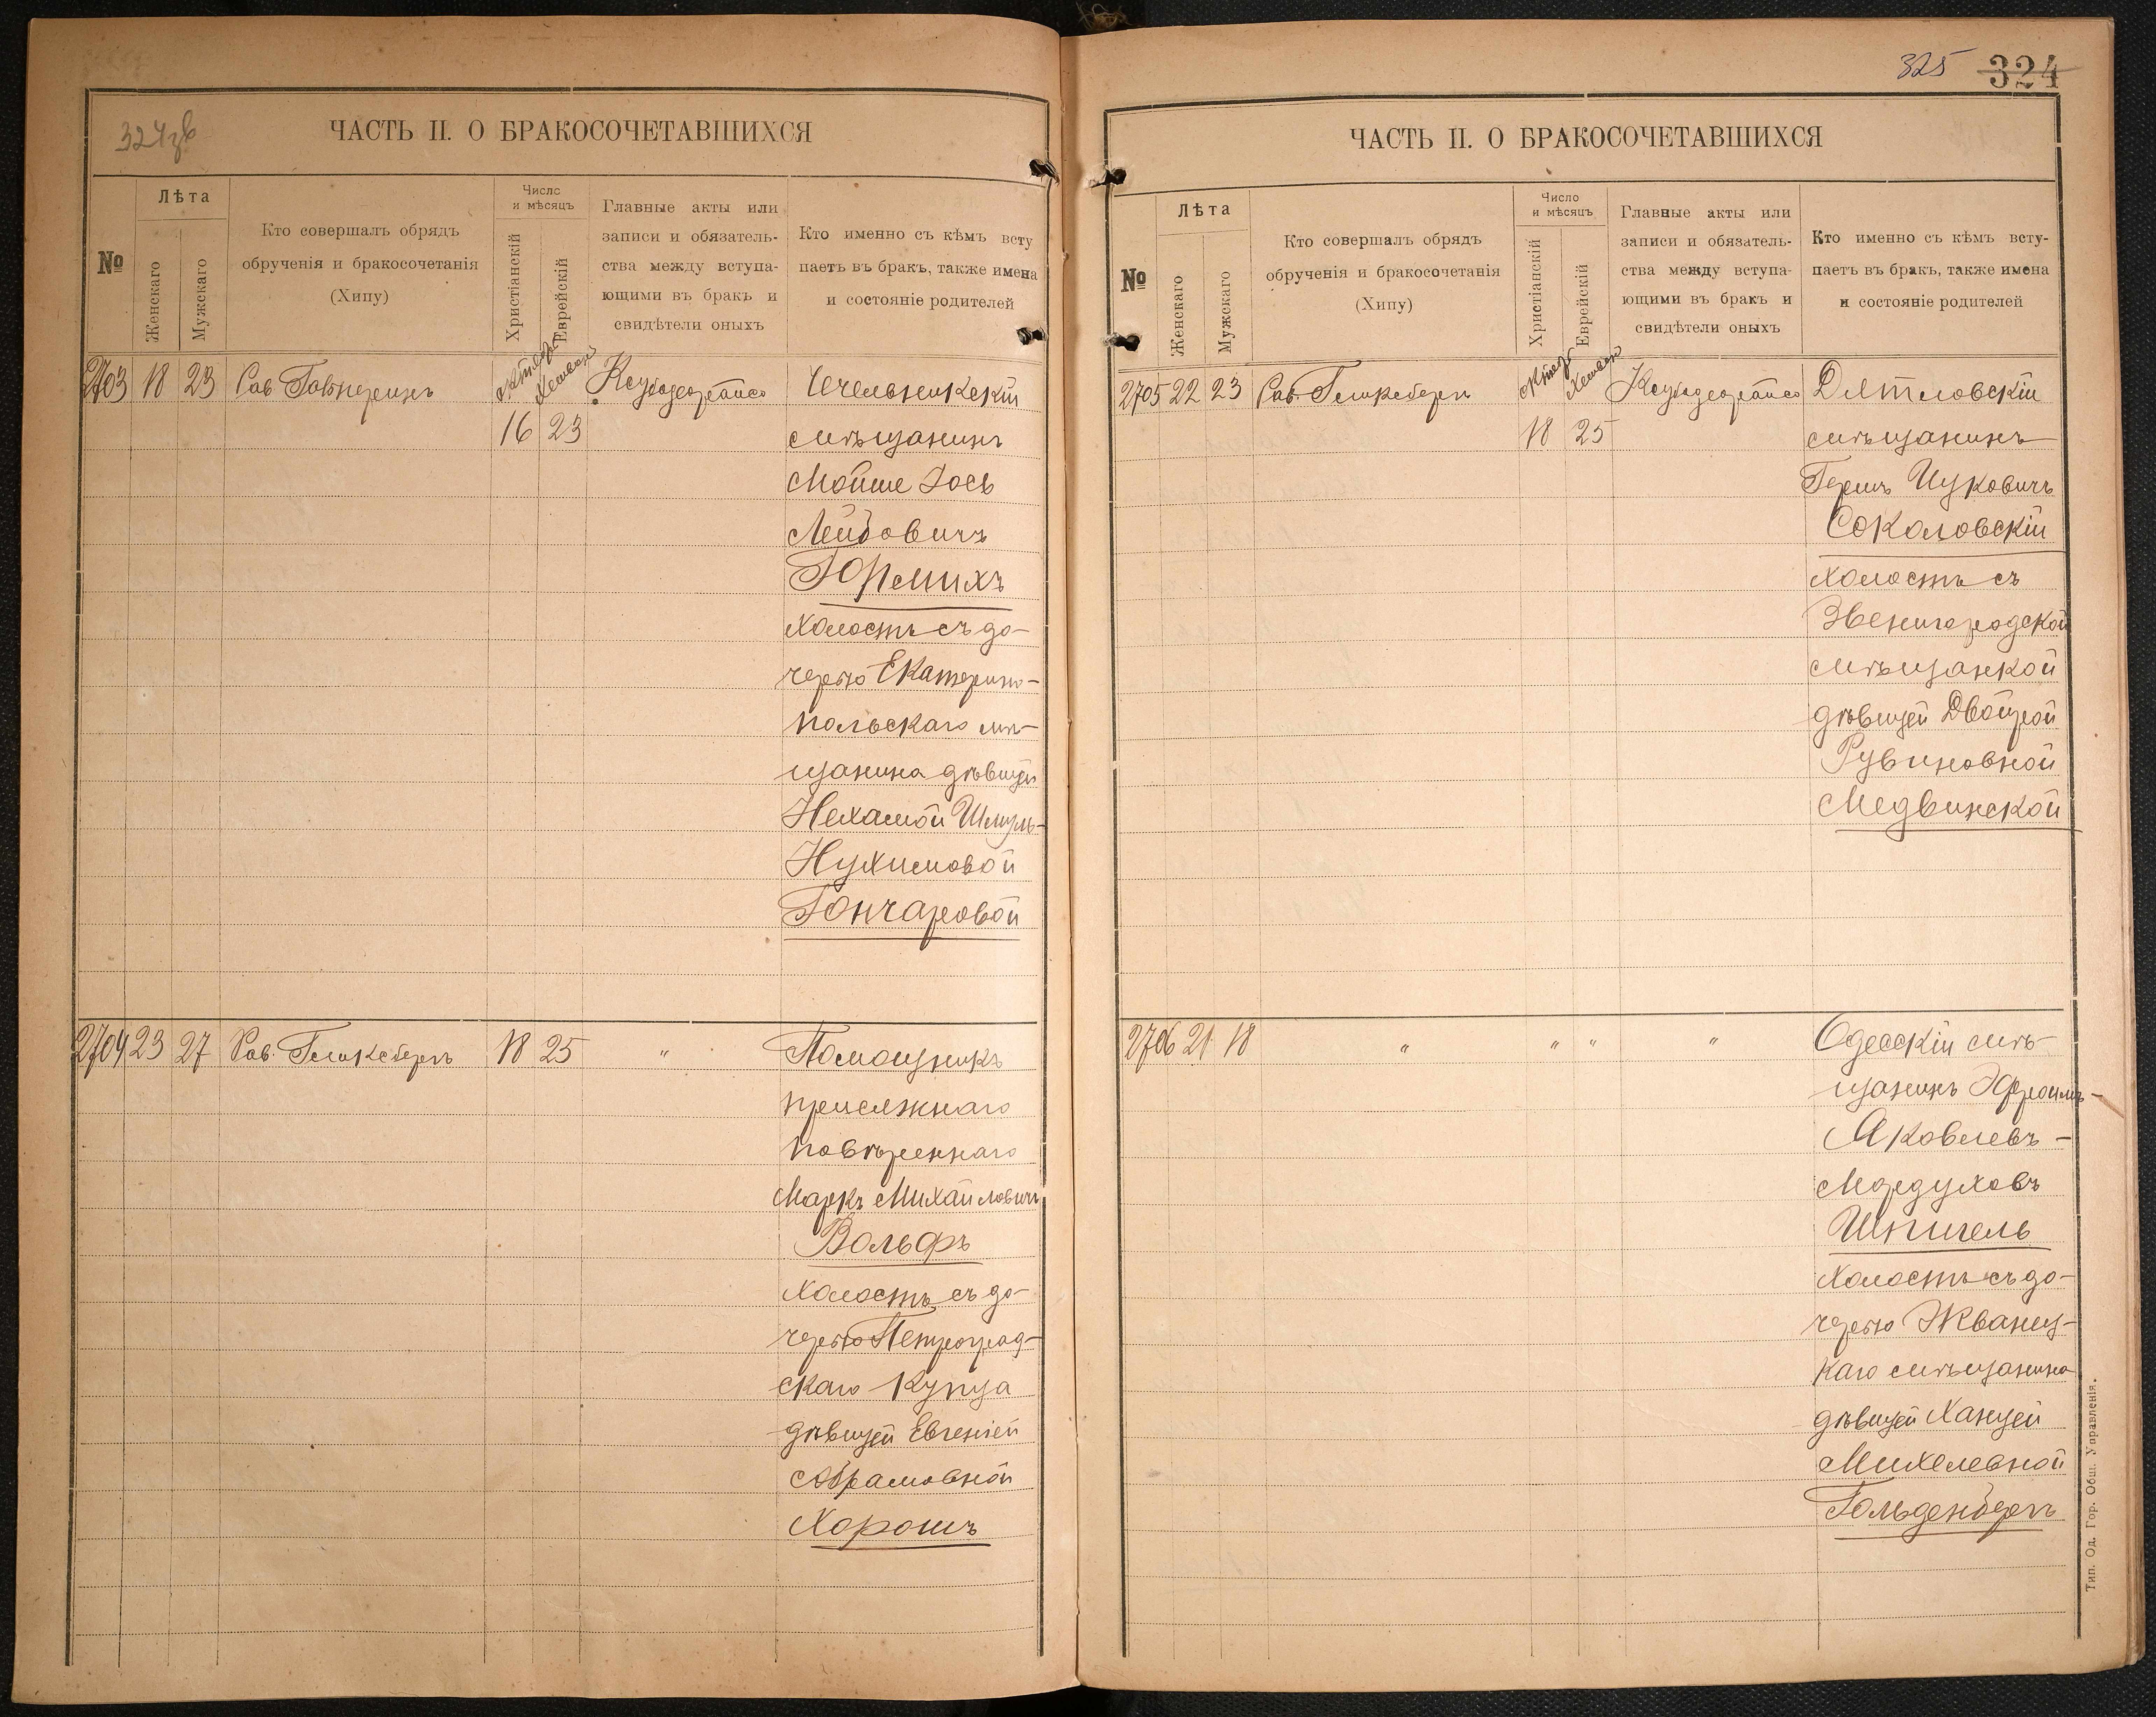 324зв
ЧАСТЬ II. О БРАКОСОЧЕТАВШИХСЯ
№
Лѣта
Женскаго
Мужскаго
Кто совершалъ обрядъ
обрученія и бракосочетанія
(Хипу)
Число
и мѣсяцъ
Христіанскій
Еврейскій
Главные акты или
записи и обязатель-
ства между вступа-
ющими въ бракъ и
свидѣтели оныхъ
Кто именно съ кѣмъ всту
паетъ въ бракъ, также имена
и состояніе родителей
2703 18 23 Рав
Октябрь Хешванъ
16 23
Чечельникскій
мѣщанинъ
Мойше Іось
Лейбовичъ
холостъ съ до-
черью Екатерино-
польскаго мѣ-
щанина дѣвицей
Нехамой Шмуль-
Нухимовой
Гончаровой
2704 23 27 Рав. Гликсбергъ 18 25 "
Помощникъ
присяжнаго
повѣреннаго
Маркъ Михайловичъ
Вольфъ
холостъ съ до-
черью Петроград-
скаго Купца
дѣвицей Евгеніей
Абрамовной
Хорошъ
325 324
ЧАСТЬ II. О БРАКОСОЧЕТАВШИХСЯ
№
Лѣта
Женскаго
Мужскаго
Кто совершалъ обрядъ
обрученія и бракосочетанія
(Хипу)
Число
и мѣсяцъ
Христіанскій
Еврейскій
Главные акты или
записи и обязатель-
ства между вступа-
ющими въ бракъ и
свидѣтели оныхъ
Кто именно съ кѣмъ всту-
паетъ въ бракъ, также имена
и состояніе родителей
2705 22 23 Рав. Гликсбергъ
Октябрь Хешванъ
18 25
Дятловскій
мѣщанинъ
Гершъ Ицковичъ
Соколовскій
холостъ съ
Звенигородской
мѣщанкой
дѣвицей Двойрой
Рувиновной
Медвинской
2706 21 18 " " " "
Одесскій мѣ-
щанинъ Эфроимъ-
Яковлевъ-
Мордуховъ
Шпигель
холостъ съ до-
черью Жванец-
каго мѣщанина
дѣвицей Ханцей
Михелевной
Гольденбергъ
Тип. Од. Гор. Общ. Управленія.